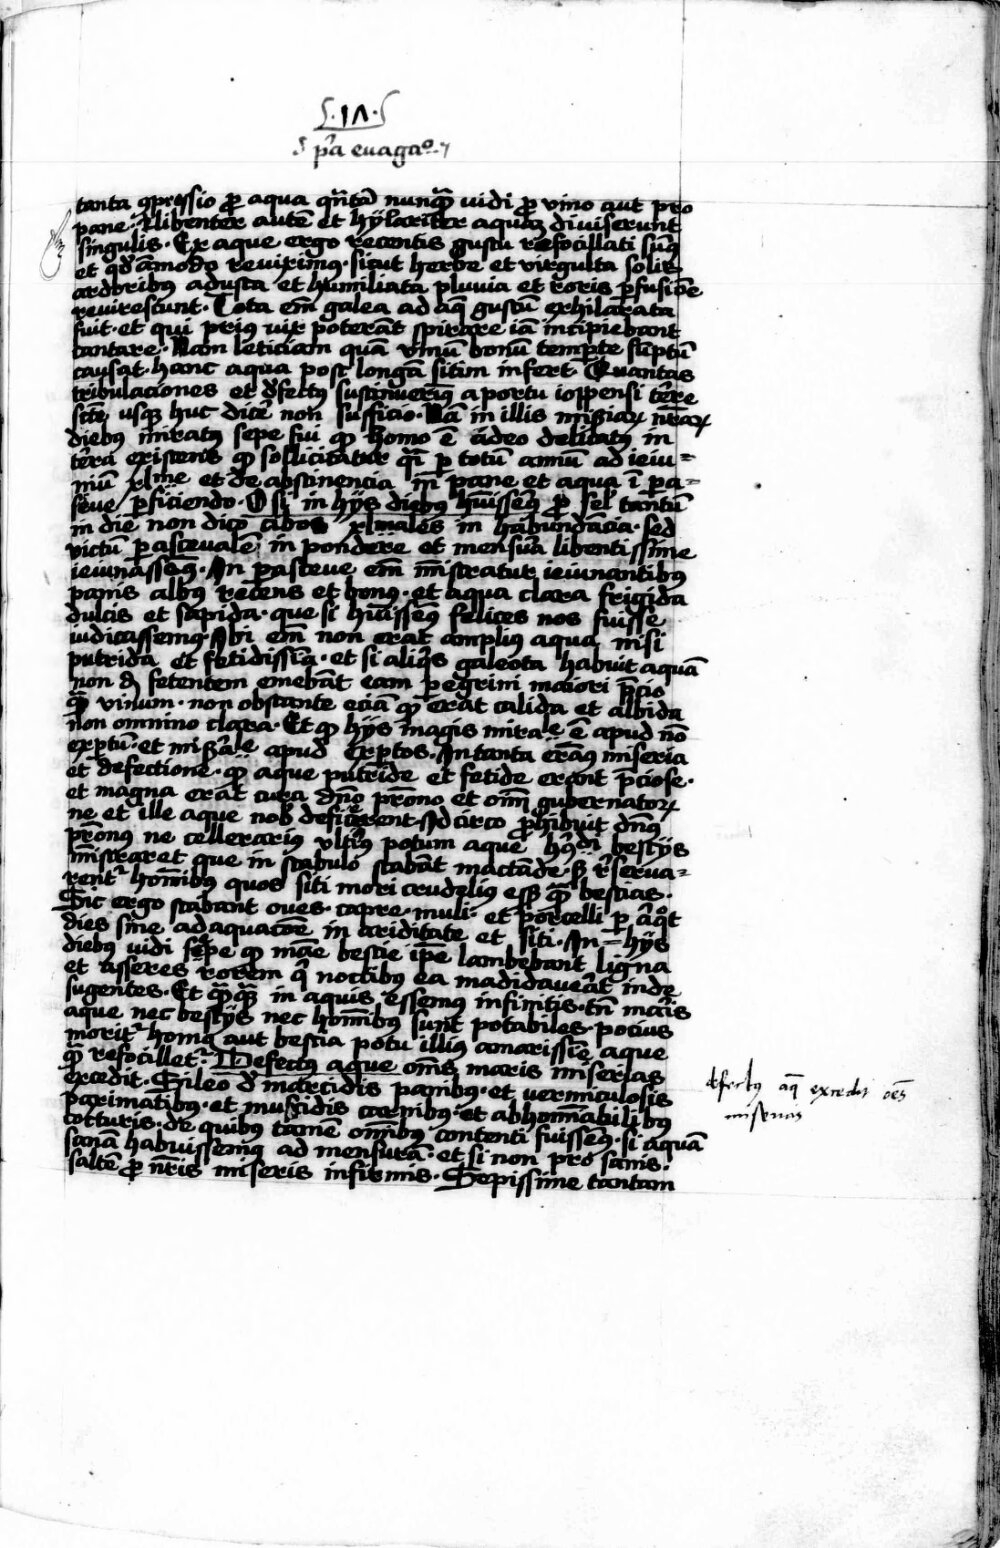 ·17·
p̄a euagac̄o
tanta ꝯpressio ꝓ aqua qn̄tā nunqͣ̄ vidi ꝓ vino aut pro
pane · libenter autē et hylariter aquaꝫ diuiserunt
singulis · Ex aque ergo recentis gustu refocillati sumꝰ
et qd̄āmodo reuiximus · sicut herbe et virgulta solis
ardoribus adusta et humiliata pluuia et roris ꝑfusiōe
reuirescunt · Tota em̄ galea ad aq̄ gustū exhilarata
fuit · et qui prius vix poterāt spirare iā incipiebant
cantare · Nam leticiam quā vinū bonū temꝑate sūptū
causat · hanc aqua post longā sitim infert · Quantas
tribulaciones et d̄fectꝰ sustinuerimꝰ a portu ioppensi t̄re
sc̄te usqꝫ huc dice͛ non sufficio · Nā in illis miẜiaꝝ nr̄aꝝ
diebꝰ miratꝰ sepe fui ꝙ homo ē adeo delicatꝰ in
t̄ra existens ꝙ sollicitatur q̄i ꝑ totū annū ad ieiu=
niū xlme et de abstinencia in pane et aqua ī pa=
sceue ꝑficiendo · O si in hys diebꝰ hūissemꝰ ꝓ semel tantū
in die non dico cibos xlmales in habundācia · sed
victū parasceualē in pondere et mensura libentissime
ieiunassemꝰ · In parasceue em̄ mīstratur ieiunantibꝰ
panis albus recens et bonus · et aqua clara frigida
dulcis et sapida · que si hūissemꝰ felices nos fuisse
iudicassemꝰ · Ibi em̄ non erat amplius aqua nisi
putrida et fetidissīa · et si aliqͥs galeota habuit aquā
non d̄ fetentem emebāt eam peregrini maiori p̄cio
qͣ̄ vinum · non obstante eciā ꝙ erat calida et albida
non omnino clara · Et ꝙ hys magis mirale ē apud nō
exꝑtū · et miẜale apud exꝑtos · In tanta erāꝰ miseria
et defectione · ꝙ aque putride et fetide erant p̄ciose ·
et magna erat cura dn̄o pr̄ono et oīm gubernatoꝝ
ne et ille aque nob̄ deficerent · Idcirco ꝓhibuit dn̄ꝰ
pr̄onus ne cellerariꝰ vlteriꝰ potum aque bestijs
mīstraret que in stabulo stabāt mactande · sꝫ reserua=
rent͛ hoīnibꝰ quos siti mori crudeliꝰ esset qͣ̄ bestias ·
Sic ergo stabant oues · capre · muli · et porcelli ꝑ aliqͦt
dies sine adaquacōe in ariditate et siti · In=hys
diebꝰ vidi sepe ꝙ mane bestie ip̄e lambebant ligna
et asseres rorem qͥ noctibus ea madidauerāt inde
sugentes · Et qͣ̄qͣ̄ in aquis essemus infinitis · tn̄ maris
aque nec bestijs nec hoīnibꝰ sunt potabiles · pociꝰ
morit͛ homo aut bestia potu illius amarissīe aque
qͣ̄ refocillet͛ · Defectus aque oēs maris miserias
excedit · Sileo d̄ marcidis panibus · et vermiculosis
parimatibus · et muscidis carnibꝰ · et abhoīnabilibꝰ
cocturis · de quibus tamē oībus contenti fuissemꝰ · si aquā
sanā habuissemꝰ ad mensurā · et si non pro sanis ·
saltē ꝓ nr̄is miseris infirmis · Sepissime tantam
defectꝰ aq̄ excedit oēs
miserias